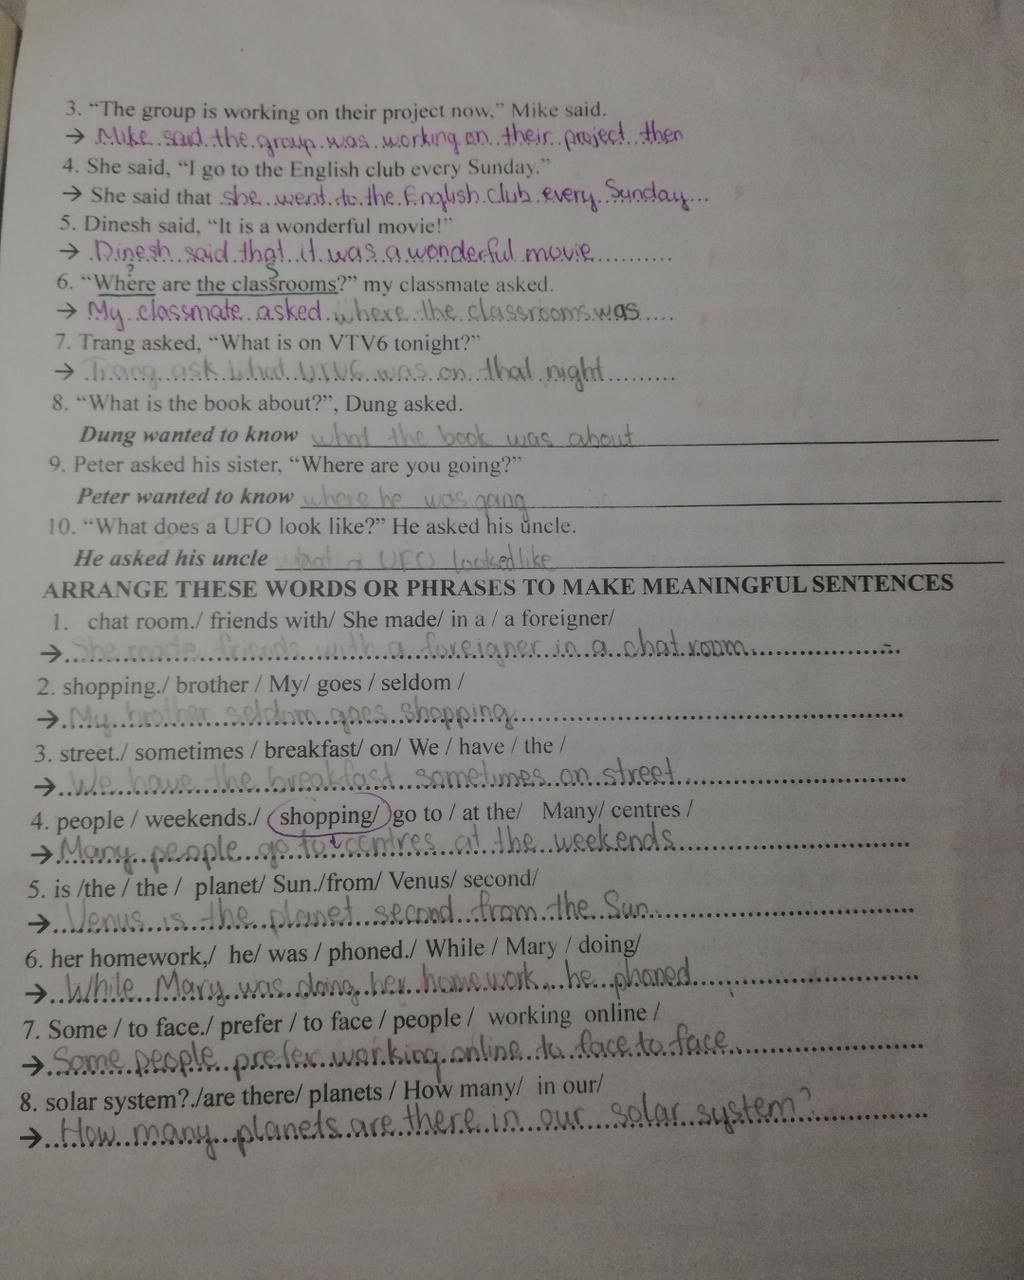 3. “The group is working on their project now,” Mike said.
→ Mike said the group was working on their project then
4. She said, “I go to the English club every Sunday.”
→ She said that she went to the English club every Sunday...
5. Dinesh said, “It is a wonderful movie!”
→ Dinesh said that it was a wonderful movie..........
? S
6. “Where are the classrooms?” my classmate asked.
→ My classmate asked where the classrooms was.....
7. Trang asked, “What is on VTV6 tonight?”
→ Trang ask what VTV6 was on that night.........
8. “What is the book about?”, Dung asked.
Dung wanted to know what the book was about
9. Peter asked his sister, “Where are you going?”
Peter wanted to know where he was going
10. “What does a UFO look like?” He asked his uncle.
He asked his uncle what a UFO looked like
ARRANGE THESE WORDS OR PHRASES TO MAKE MEANINGFUL SENTENCES
1. chat room./ friends with/ She made/ in a / a foreigner/
→ She made friends with a foreigner in a chat room
2. shopping./ brother / My/ goes / seldom /
→ My brother seldom goes shopping
3. street./ sometimes / breakfast/ on/ We / have / the /
→ We have the breakfast sometimes on street
4. people / weekends./ shopping/ go to / at the/ Many/ centres /
→ Many people go to centres at the weekends
5. is /the / the / planet/ Sun./from/ Venus/ second/
→ Venus is the planet second from the Sun
6. her homework,/ he/ was / phoned./ While / Mary / doing/
→ While Mary was doing her homework, he phoned
7. Some / to face./ prefer / to face / people / working online /
→ Some people prefer working online to face to face
8. solar system?./are there/ planets / How many/ in our/
→ How many planets are there in our solar system?